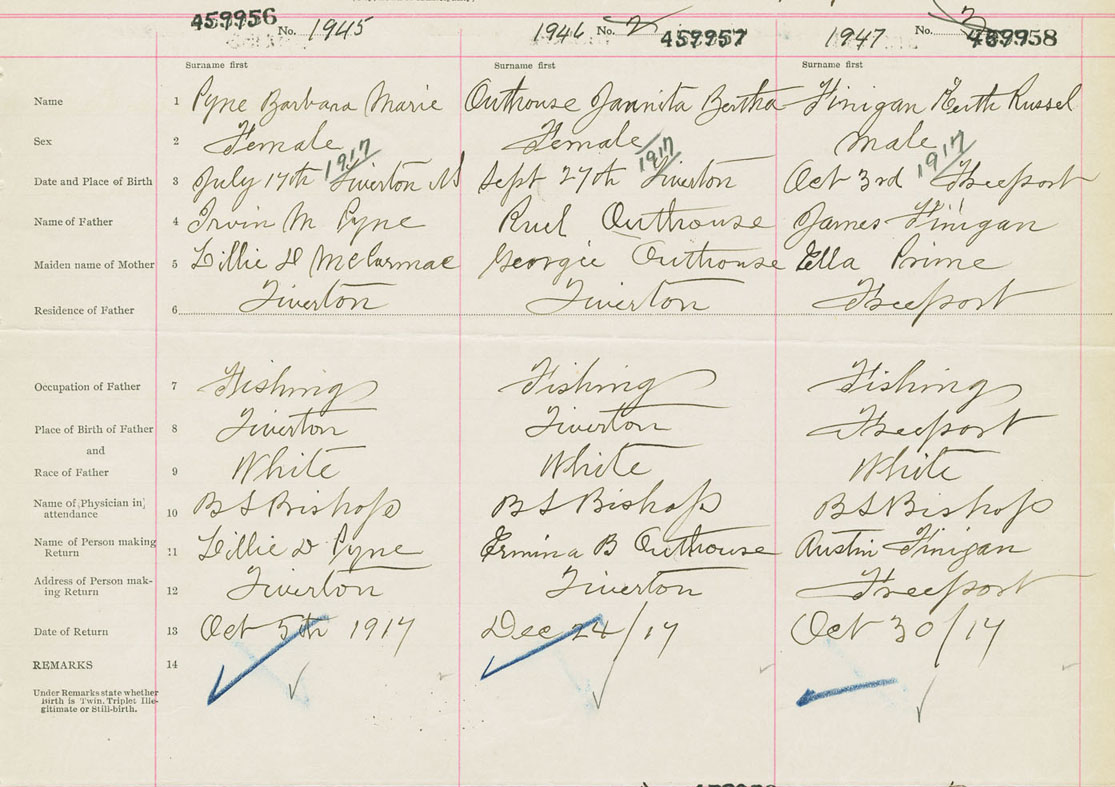 459956 No. 1945 1946 No. 2 459957 1947 No. 3 459958
Surname first Surname first Surname first
Name 1 Pyne Barbara Marie Outhouse Jannita Bertha Finigan Keith Russel
Sex 2 Female Female Male
1917 1917 1917
Date and Place of Birth 3 July 17th Tiverton NS Sept 27th Tiverton Oct 3rd Freeport
Name of Father 4 Irvin M Pyne Ruel Outhouse James Finigan
Maiden name of Mother 5 Lillie D McCormac Georgie Outhouse Ella Prime
Residence of Father 6 Tiverton Tiverton Freeport
Occupation of Father 7 Fishing Fishing Fishing
Place of Birth of Father 8 Tiverton Tiverton Freeport
and
Race of Father 9 White White White
Name of Physician in
attendance 10 B S Bishop B S Bishop B S Bishop
Name of Person making
Return 11 Lillie D Pyne Ermina B Outhouse Austin Finigan
Address of Person mak-
ing Return 12 Tiverton Tiverton Freeport
Date of Return 13 Oct 5th 1917 Dec 24/17 Oct 30/17
REMARKS 14
Under Remarks state whether
Birth is Twin, Triplet Ille-
gitimate or Still-birth.